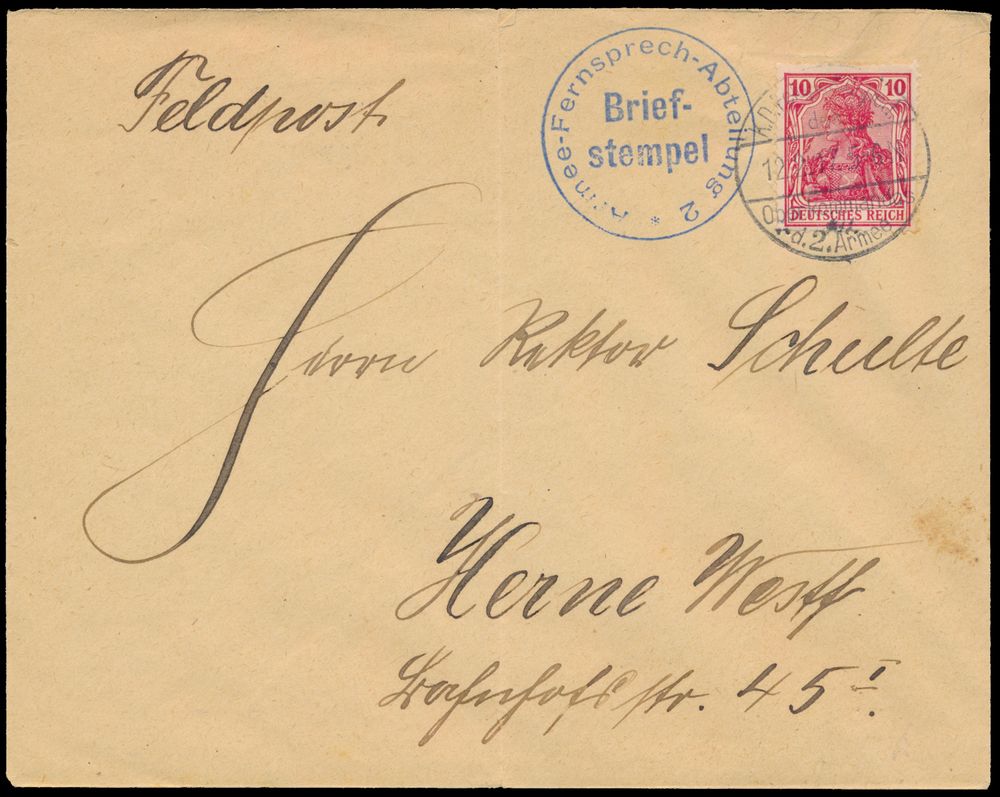 Feldpost
Armee-Fernsprech-Abteilung 2 *
Brief-
stempel
10 10
DEUTSCHES REICH
12
Oberkommandos
d. 2. Armee
Herrn Rektor Schulte
Herne Westf.
Bahnhofstr. 45 I.